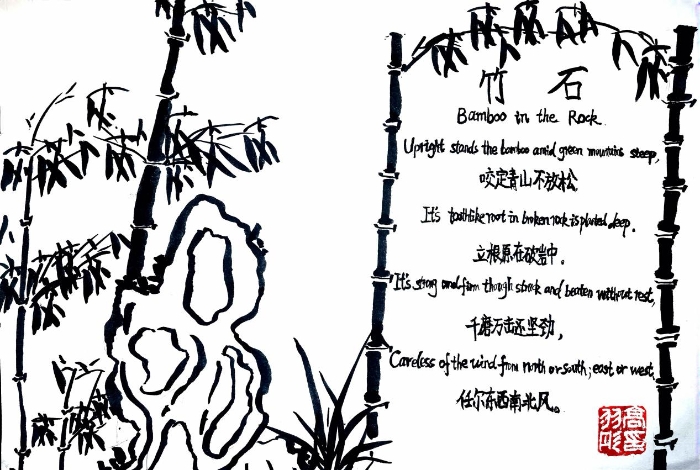 竹石
Bamboo in the Rock
Upright stands the bamboo amid green mountains steep,
咬定青山不放松,
It's toothlike root in broken rock is planted deep.
立根原在破岩中。
It's strong and firm though struck and beaten without rest,
千磨万击还坚劲,
Careless of the wind from north or south; east or west.
任尔东西南北风。